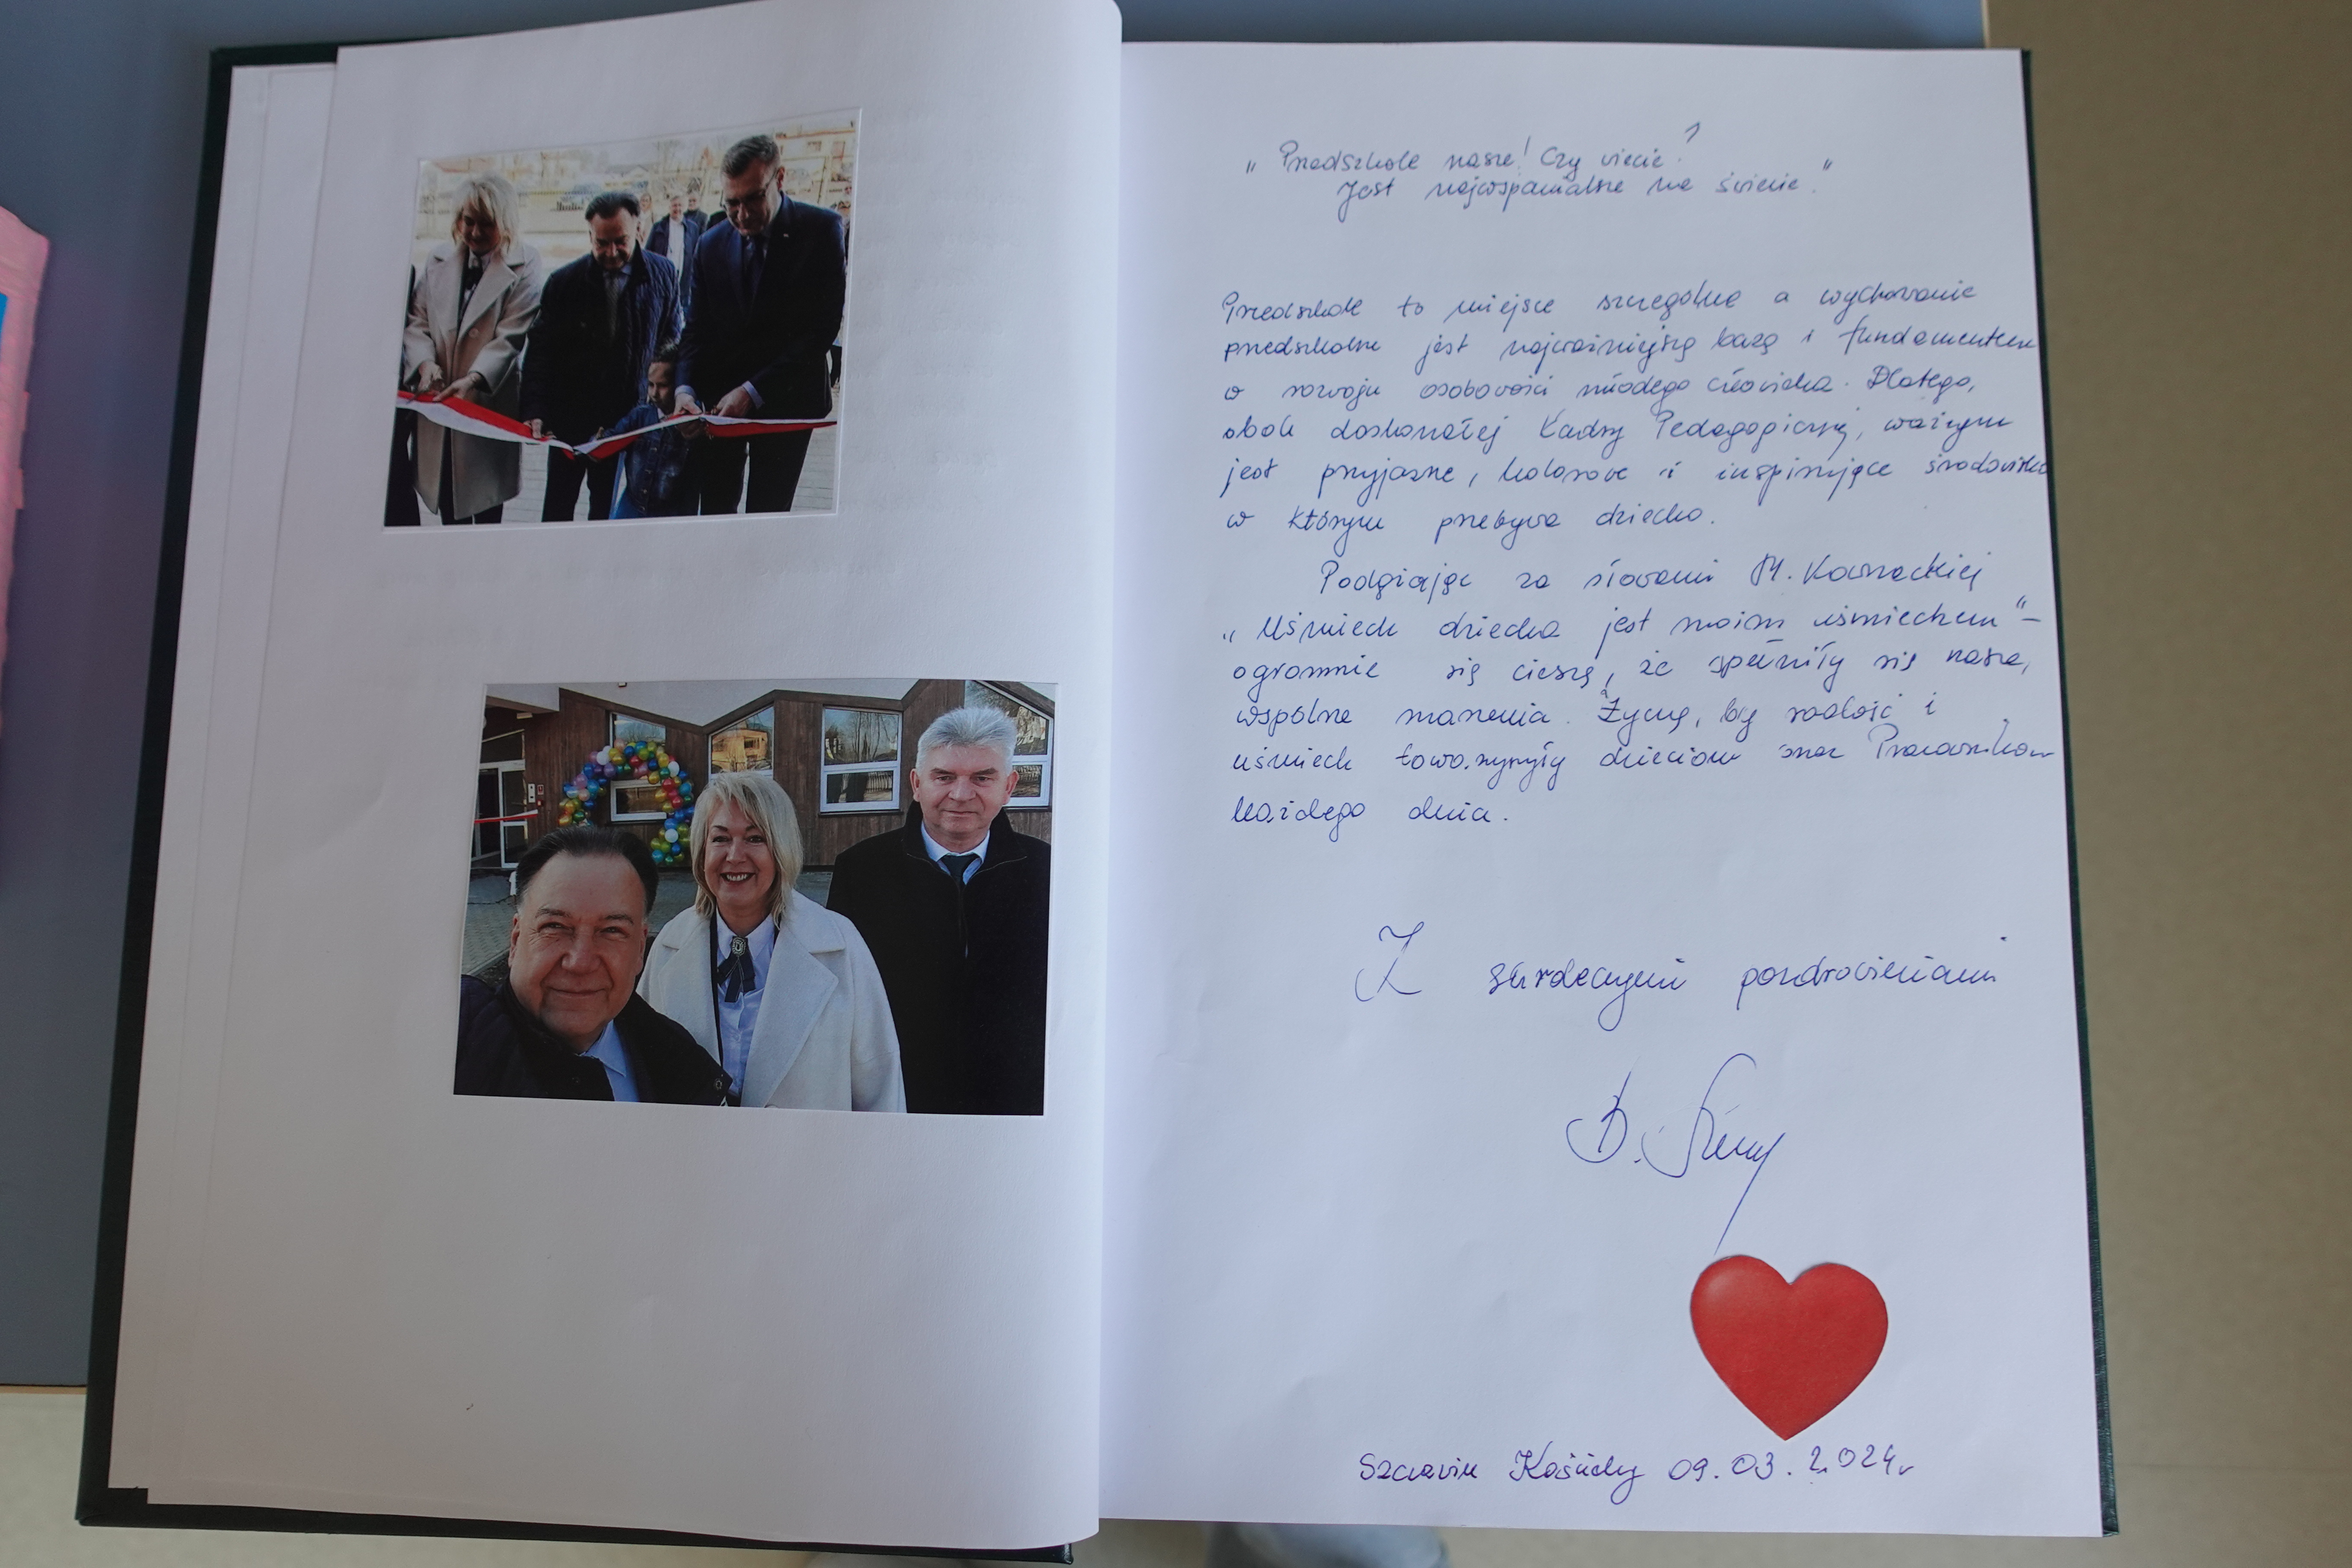 „ Przedszkole nasze! Czy wiecie?
Jest najwspanialsze na świecie."
Przedszkole to miejsce szczególne a wychowanie
przedszkolne jest najważniejszą bazą i fundamentem
w rozwoju osobowości młodego człowieka. Dlatego,
obok doskonałej Kadry Pedagogicznej, ważnym
jest przyjazne, kolorowe i inspirujące środowisko
w którym przebywa dziecko.
Podążając za słowami M. Kownackiej
„ Uśmiech dziecka jest moim uśmiechem" –
ogromnie się cieszę, że spełniły się nasze,
wspólne marzenia. Życzę, by radość i
uśmiech towarzyszyły dzieciom oraz Pracownikom
każdego dnia.
Z serdecznymi pozdrowieniami
B.
Szczawin Kościelny 09.03.2024r